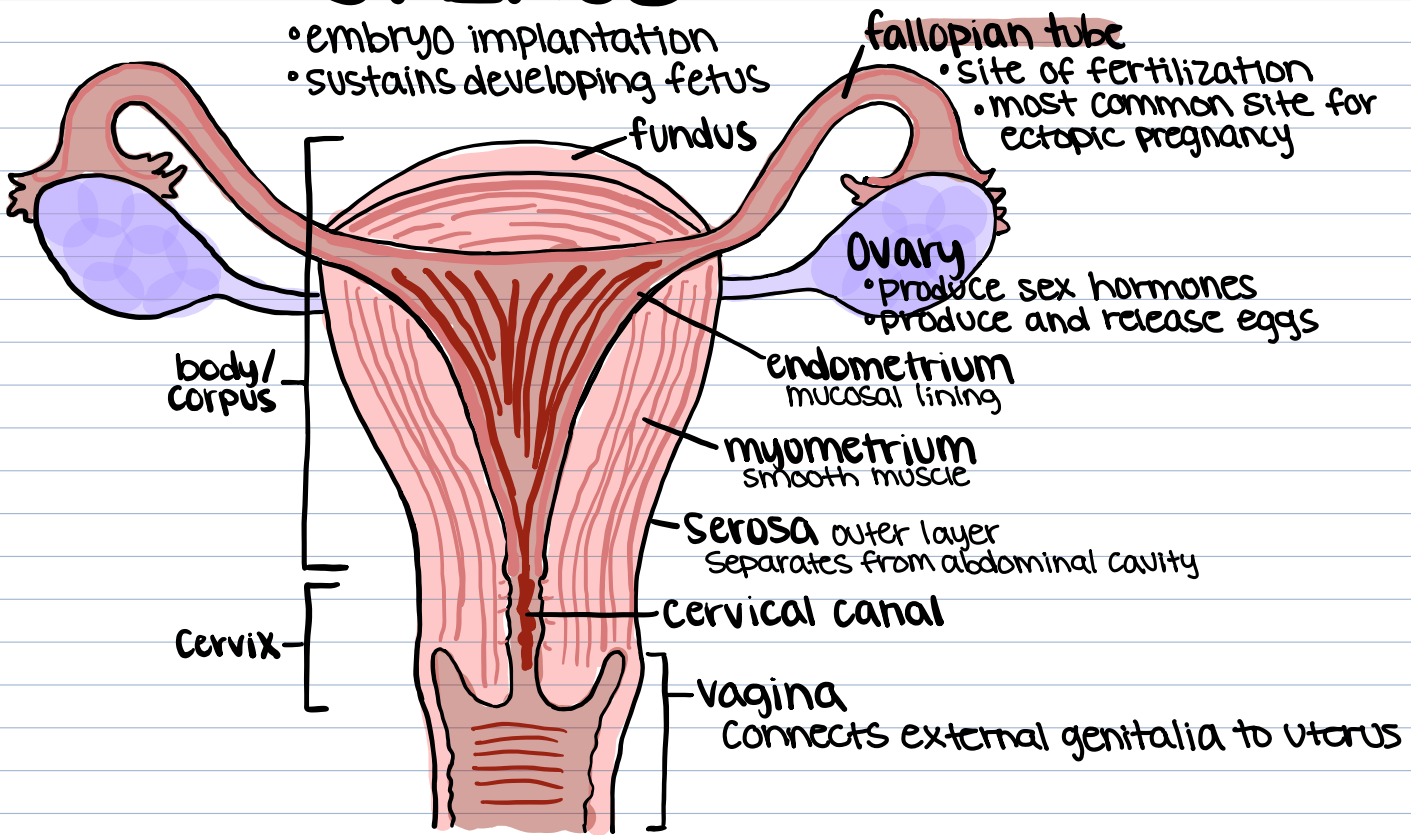 •embryo implantation
•sustains developing fetus
fallopian tube
•site of fertilization
•most common site for
ectopic pregnancy
fundus
Ovary
•produce sex hormones
•produce and release eggs
body/
corpus
endometrium
mucosal lining
myometrium
smooth muscle
Serosa outer layer
Separates from abdominal cavity
cervical canal
Cervix
vagina
Connects external genitalia to uterus